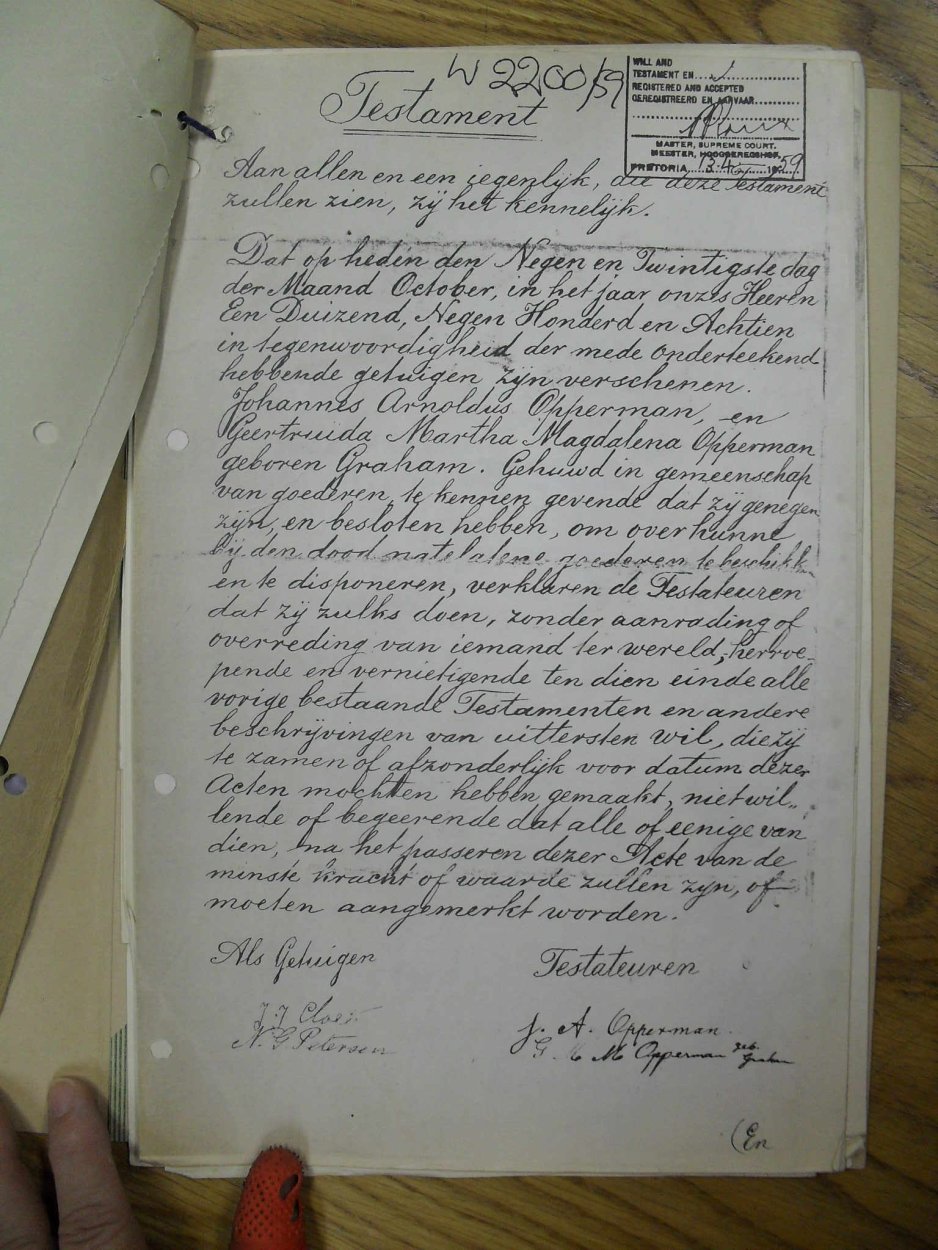 W 2200/59
WILL AND
TESTAMENT EN
REGISTERED AND ACCEPTED
GEREGISTREERD EN AANVAAR
MASTER, SUPREME COURT.
MEESTER, HOOGGEREGSHOF.
PRETORIA 13 4 1959
Testament
Aan allen en een iegenlijk, die deze Testament
zullen zien, zij het kennelijk.
Dat op heden den Negen en Twintigste dag
der Maand October, in het jaar onzes Heeren
Een Duizend, Negen Honderd en Achtien
in tegenwoordigheid der mede onderteekend
hebbende getuigen zijn verschenen.
Johannes Arnoldus Opperman, en
Geertruida Martha Magdalena Opperman
geboren Graham. Gehuwd in gemeenschap
van goederen, te kennen gevende dat zij genegen
zijn, en besloten hebben, om over hunne
bij den dood natelatene goederen te beschikk
en te disponeren, verklaren de Testateuren
dat zij zulks doen, zonder aanrading of
overreding van iemand ter wereld, herroe-
pende en vernietigende ten dien einde alle
vorige bestaande Testamenten en andere
beschrijvingen van uittersten wil, die zij
te zamen of afzonderlijk voor datum dezer
Acten mochten hebben gemaakt, niet wil„
lende of begeerende dat alle of eenige van
dien, na het passeren dezer Acte van de
minste kracht of waarde zullen zijn, of
moeten aangemerkt worden.
Als Getuigen
Testateuren
J. J.
N. G. Petersen
J. A. Opperman.
G. M. M. Opperman geb. Graham
(En